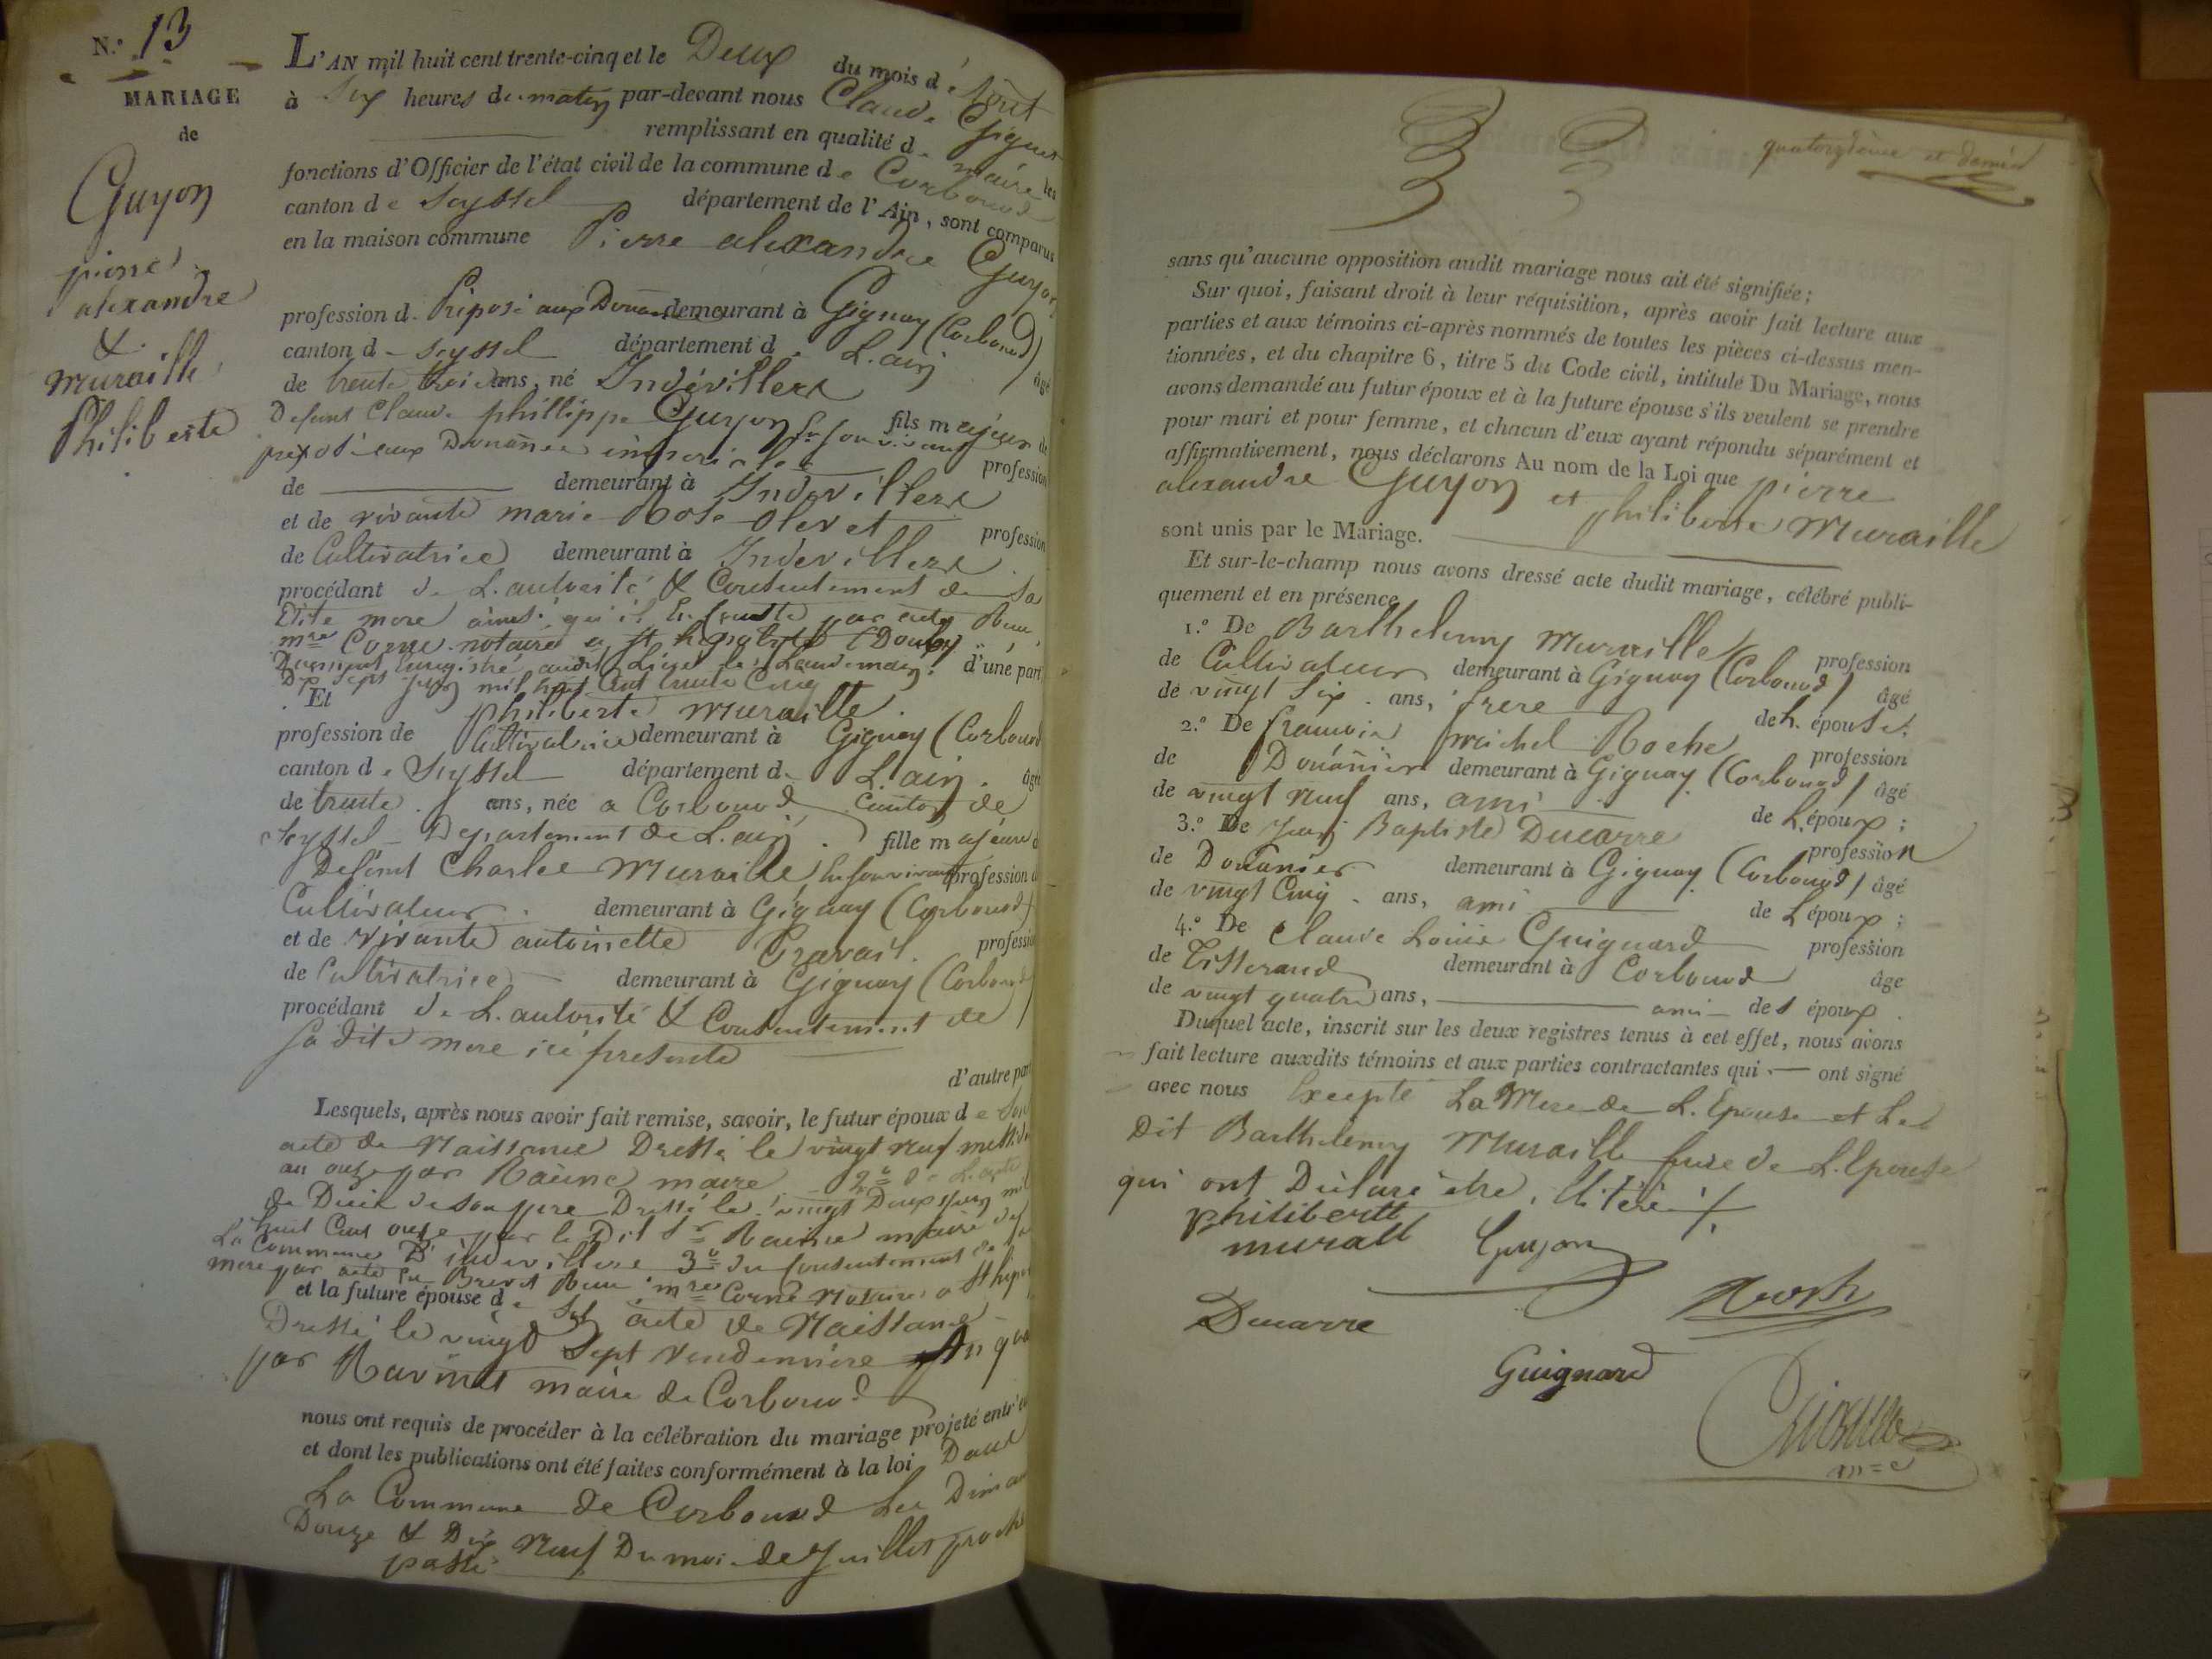 N.° 13
MARIAGE
de
Guyon
pierre
alexandre
&
muraille
Philiberte
L'AN mil huit cent trente-cinq et le Deux du mois d'Aout
à Six heures du matin par-devant nous Claude
remplissant en qualité de maire les
fonctions d'Officier de l'état civil de la commune de Corbonod
canton de Seyssel département de l'Ain, sont comparus
en la maison commune Pierre alexandre Guyon
profession de Préposé aux Douanes demeurant à Gignay (Corbonod)
canton de Seyssel département de L'ain âgé
de trente trois ans, né Indévillers
fils majeur de
Defunt Claude phillippe Guyon
préposé aux Douanes impériales profession
de demeurant à Indevillers
et de vivante marie Rose profession
de Cultivatrice demeurant à Indevillers
procédant de L'autorité & Consentement de Sa
Dite mere ainsi qu'il
mre Corne notaire a St hypolite (Doubs) d'une part
Dument Enregistré audit Lieu le Landemain
Dix Sept juin mil huit Cent trente Cinq
Et philiberte muraille
profession de Cultivatrice demeurant à Gignay (Corbonod)
canton de Seyssel département de L'ain âgée
de trente ans, née a Corbonod Canton de
Seyssel Département de L'ain fille majeure d
Defunt Charles Muraille profession d
Cultivateur demeurant à Gignay (Corbonod)
et de vivante antoinette Travail profession
de Cultivatrice demeurant à Gignay (Corbonod)
procédant de L'autorité & Consentement de
Sa dite mere ici presente
d'autre part
Lesquels, après nous avoir fait remise, savoir, le futur époux de Son
acte de Naissance Dressé le vingt neuf messidor
an onze par maire 2° De L'acte
de Décès de son pere Dressé le vingt Deux juin mil
huit Cent onze par le Dit Sr maire de
La Commune D'indevillers 3° du Consentement de sa
mere par acte en Brevet Reçu mre Corne Notaire a St hipo
et la future épouse de Son acte de Naissance
Dressé le vingt Sept vendemiaire
par maire de Corbonod
nous ont requis de procéder à la célébration du mariage projeté entr'eux
et dont les publications ont été faites conformément à la loi Dans
La Commune de Corbonod Les
Douze & Dix Neuf Du mois de Juillet proche
passé
quatorzième et dernier
sans qu'aucune opposition audit mariage nous ait été signifiée;
Sur quoi, faisant droit à leur réquisition, après avoir fait lecture aux
parties et aux témoins ci-après nommés de toutes les pièces ci-dessus men-
tionnées, et du chapitre 6, titre 5 du Code civil, intitulé Du Mariage, nous
avons demandé au futur époux et à la future épouse s'ils veulent se prendre
pour mari et pour femme, et chacun d'eux ayant répondu séparément et
affirmativement, nous déclarons Au nom de la Loi que pierre
alexandre Guyon et philiberte Muraille
sont unis par le Mariage.
Et sur-le-champ nous avons dressé acte dudit mariage, célébré publi-
quement et en présence
1.° De Barthelemy Muraille profession
de Cultivateur demeurant à Gignay (Corbonod) âgé
de vingt Six ans, frere de L'épouse;
2.° De françois michel Roche profession
de Douánier demeurant à Gignay (Corbonod) âgé
de vingt neuf ans, ami de L'époux;
3.° De Jean Baptiste Ducarre profession
de Douanier demeurant à Gignay (Corbonod) âgé
de vingt Cinq ans, ami de L'époux;
4.° De Claude Louis Guignard profession
de Tisserand demeurant à Corbonod âge
de vingt quatre ans, ami des époux.
Duquel acte, inscrit sur les deux registres tenus à cet effet, nous avons
fait lecture auxdits témoins et aux parties contractantes qui ont signé
avec nous Excepté La Mere de L'Epouse et Le
Dit Barthelemy Muraille frere de L'Epouse
qui ont Déclaré être illitéré
philibertt
murall Guyon
Ducarre
Guignard